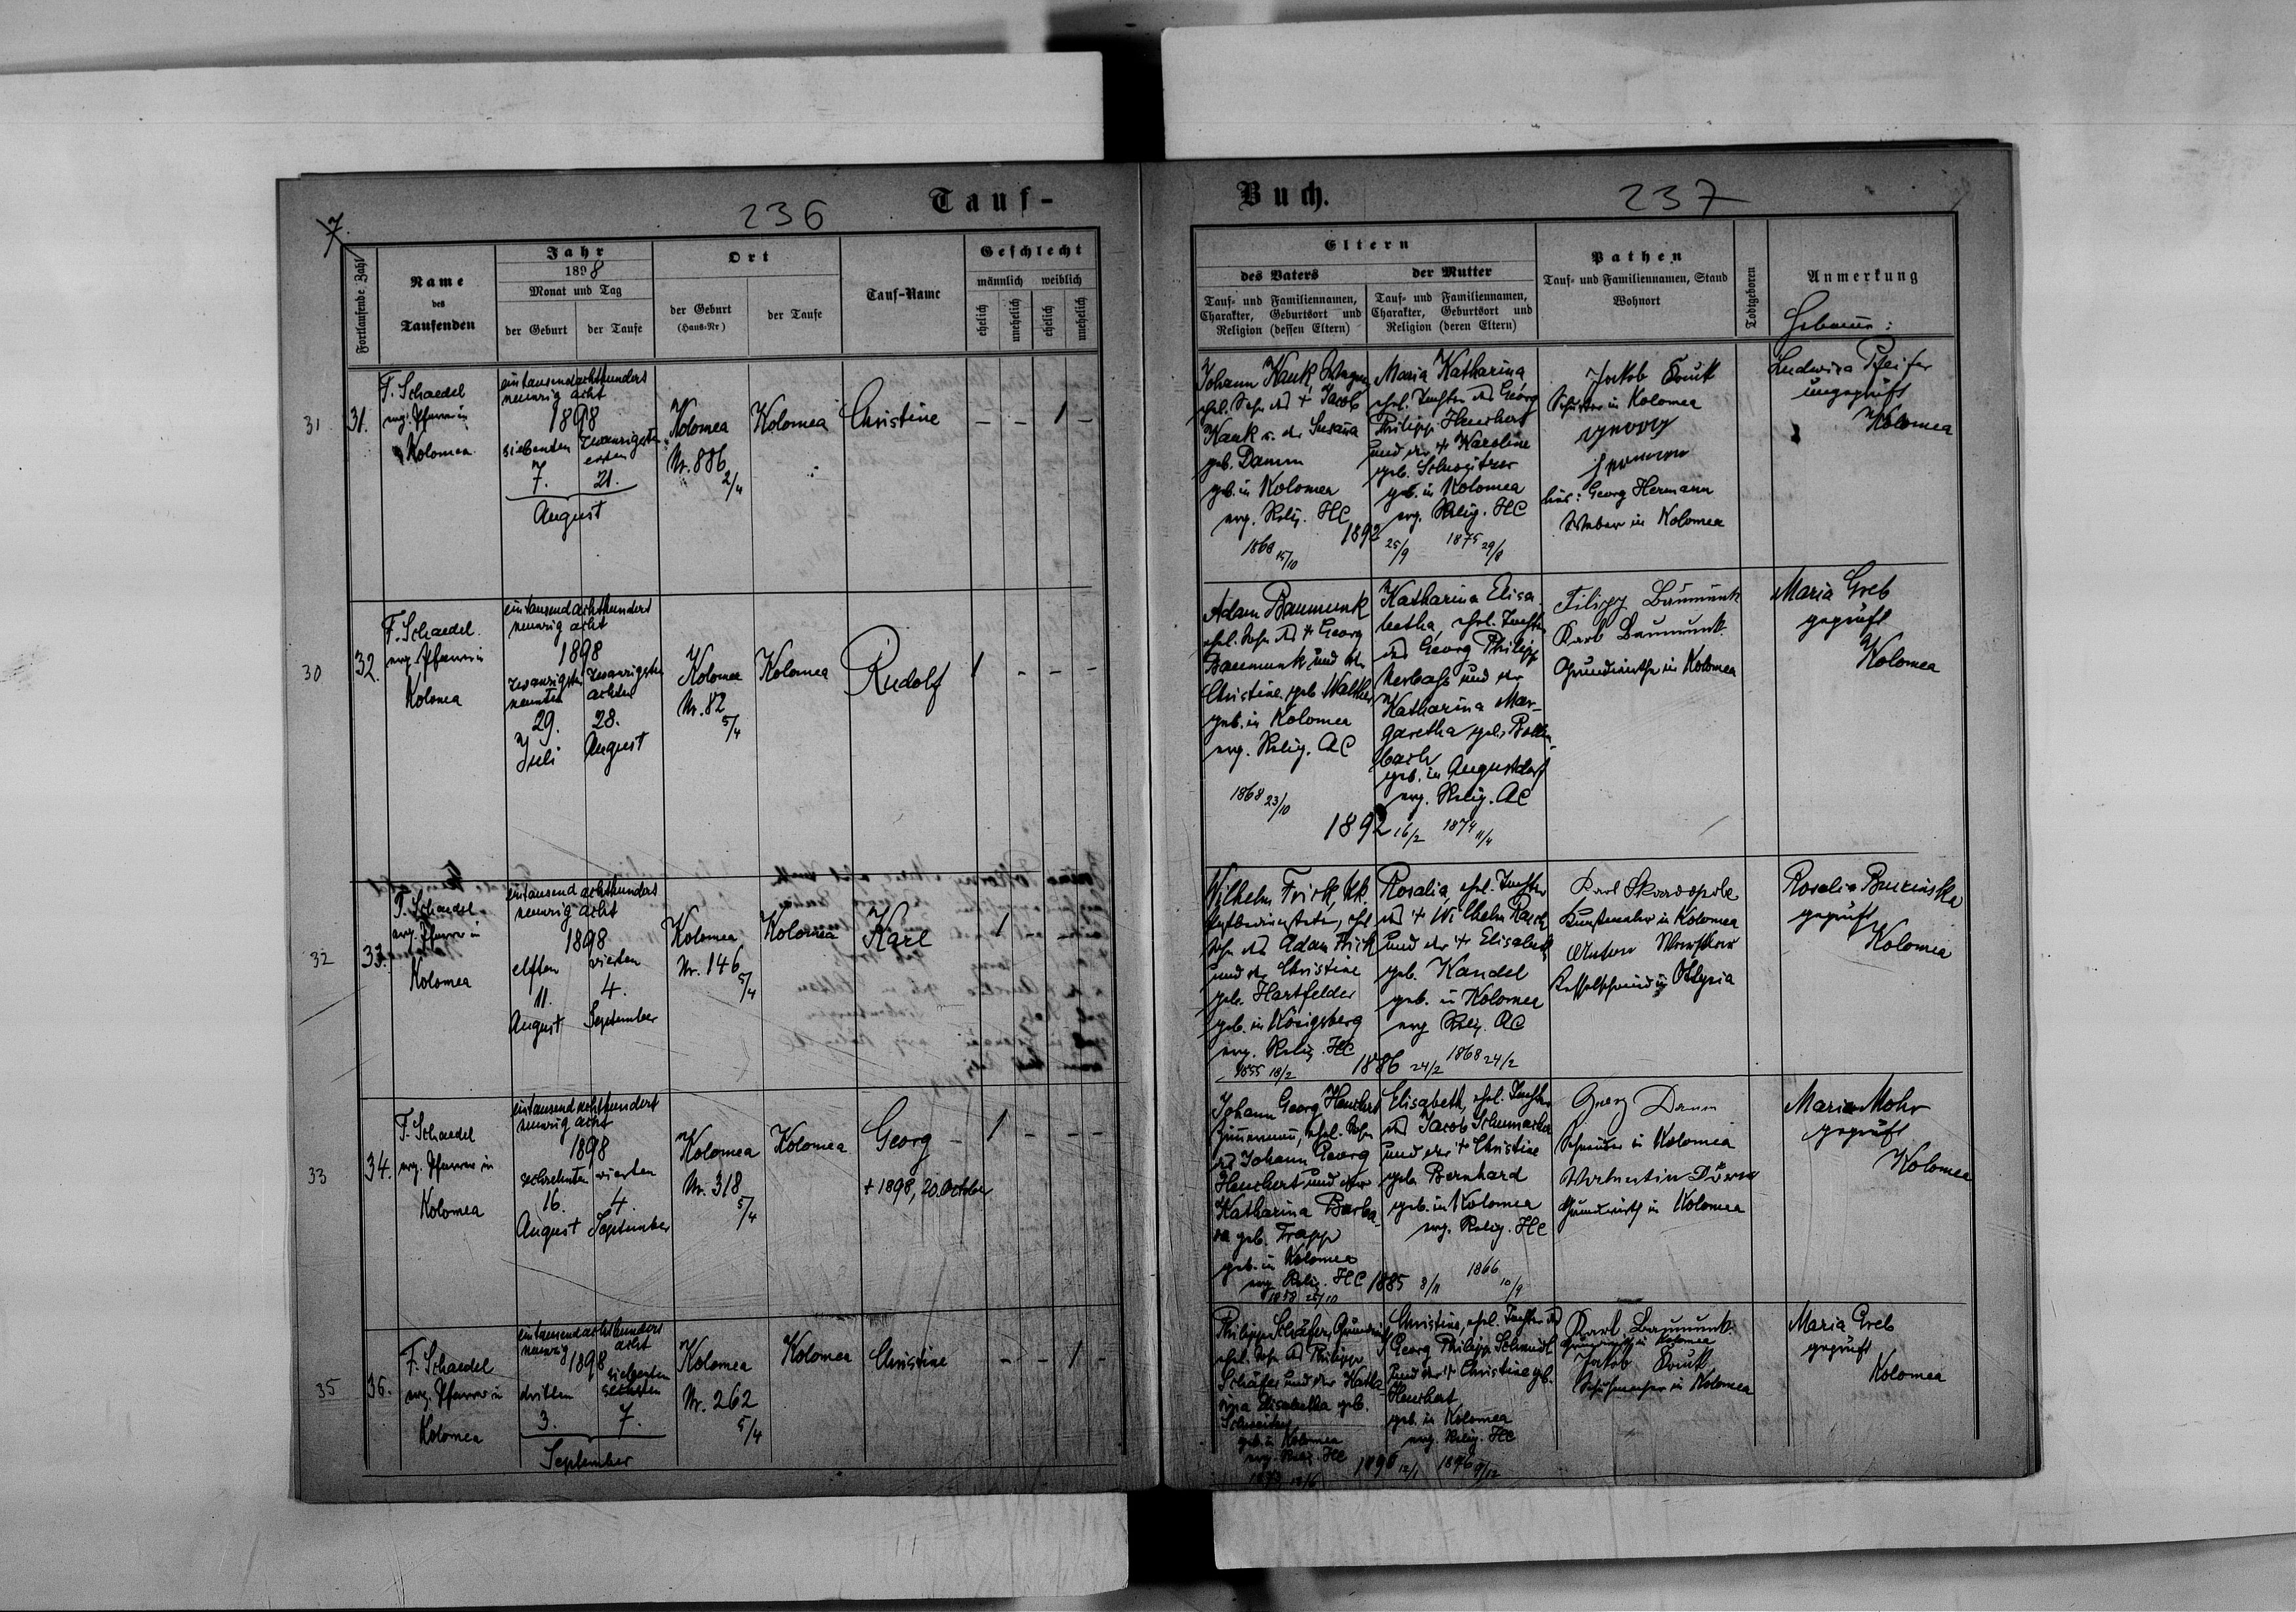 236
Tauf-
7.
Fortlaufende Zahl
Name
des
Taufenden
Jahr
1898
Monat und Tag
der Geburt
der Taufe
Ort
der Geburt
(Haus-Nr)
der Taufe
Tauf-Name
Geschlecht
männlich
weiblich
ehelich
unehelich
ehelich
unehelich
31
31.
F. Schaedel
evg. Pfarrer in
Kolomea
eintausendachthundert
neunzig acht
1898
siebenten
zwanzigsten
ersten
7.
21.
August
Kolomea
Nr. 886
2/4
Kolomea
Christine
- - 1 -
30
32.
F. Schaedel
evg. Pfarrer in
Kolomea
eintausendachthundert
neunzig acht
1898
zwanzigsten
neunten
zwanzigsten
achten
29.
28.
Juli
August
Kolomea
Nr. 82
5/4
Kolomea
Rudolf
1 - - -
32
33.
F. Schaedel
evg. Pfarrer in
Kolomea
eintausendachthundert
neunzig acht
1898
elften
vierten
11.
4.
August
September
Kolomea
Nr. 146
5/4
Kolomea
Karl
1 - - -
33
34.
F. Schaedel
evg. Pfarrer in
Kolomea
eintausendachthundert
neunzig acht
1898
sechzehnten
vierten
16.
4.
August
September
Kolomea
Nr. 318
5/4
Kolomea
Georg
+ 1898, 20. October
1 - - -
35
36.
F. Schaedel
evg. Pfarrer in
Kolomea
eintausendachthundert
neunzig acht
1898
dritten
siebenten
sechsten
3.
7.
September
Kolomea
Nr. 262
5/4
Kolomea
Christine
- - 1 -
Buch.
237
Eltern
des Vaters
Tauf- und Familiennamen,
Charakter, Geburtsort und
Religion (dessen Eltern)
der Mutter
Tauf- und Familiennamen,
Charakter, Geburtsort und
Religion (deren Eltern)
Pathen
Tauf- und Familiennamen, Stand
Wohnort
Todtgeboren
Anmerkung
Hebamme:
Johann Kauk, Wagner
ehel. Sohn des + Jacob
Kauk u. der Susanna
geb. Damm
geb. in Kolomea
evg. Relig. HC
1868 15/10
1892 25/9
Maria Katharina
ehel. Tochter des Georg
Philipp Heuchert
und der + Karoline
geb. Schweitzer
geb. in Kolomea
evg. Relig. HC
1875 29/8
Jakob Kauk
Schuster in Kolomea
hier: Georg Hermann
Weber in Kolomea
Ludwina Pfeifer
ungeprüft
Kolomea
Adam Baumunk
ehel. Sohn des + Georg
Baumunk und der
Christine geb. Walther
geb. in Kolomea
evg. Relig. AC
1868 23/10
1892 16/2
Katharina Elisa
betha, ehel. Tochter
des Georg Philipp
Kerbaß und der
Katharina Mar-
garetha geb. Rollen
bach
geb. in Augustdorf
evg. Relig. AC
1874 11/4
Filipp Baumunk
Karl Baumunk
Grundwirthe in Kolomea
Maria Greb
geprüft
Kolomea
Wilhelm Frick, kk.
ehel.
Sohn des Adam Frick
und der Christine
geb. Hartfelder
geb. in Königsberg
evg. Relig. HC
1855 18/2
1886 24/2
Rosalia, ehel. Tochter
des + Wilhelm Rasch
und der + Elisabeth
geb. Kandel
geb. in Kolomea
evg. Relig. AC
1868 24/2
Karl
in Kolomea
Anton
Kesselschmied in Ottynia
Rosalia
geprüft
Kolomea
Johann Georg Heuchert
Zimmermann, ehel. Sohn
des Johann Georg
Heuchert und der
Katharina Barba-
ra geb. Trapp
geb. in Kolomea
evg. Relig. HC
1858 25/10
1885 8/11
Elisabeth, ehel. Tochter
des Jacob Schumacher
und der + Christine
geb. Bernhard
geb. in Kolomea
evg. Relig. HC
1866 10/9
Georg Damm
Schneider in Kolomea
Valentin
Grundwirth in Kolomea
Maria Mohr
geprüft
Kolomea
Philipp Schäfer, Grundwirth
ehel. Sohn des Philipp
Schäfer und der Katha-
rina Elisabetha geb.
Schweitzer
geb. in Kolomea
evg. Relig. HC
1896 12/1
Christine, ehel. Tochter des
Georg Philipp Schmidt
und der + Christine geb.
Heuchert
geb. in Kolomea
evg. Relig. HC
1876 9/12
Karl Baumunk
Grundwirth in Kolomea
Jakob Kauk
Schuhmacher in Kolomea
Maria Greb
geprüft
Kolomea